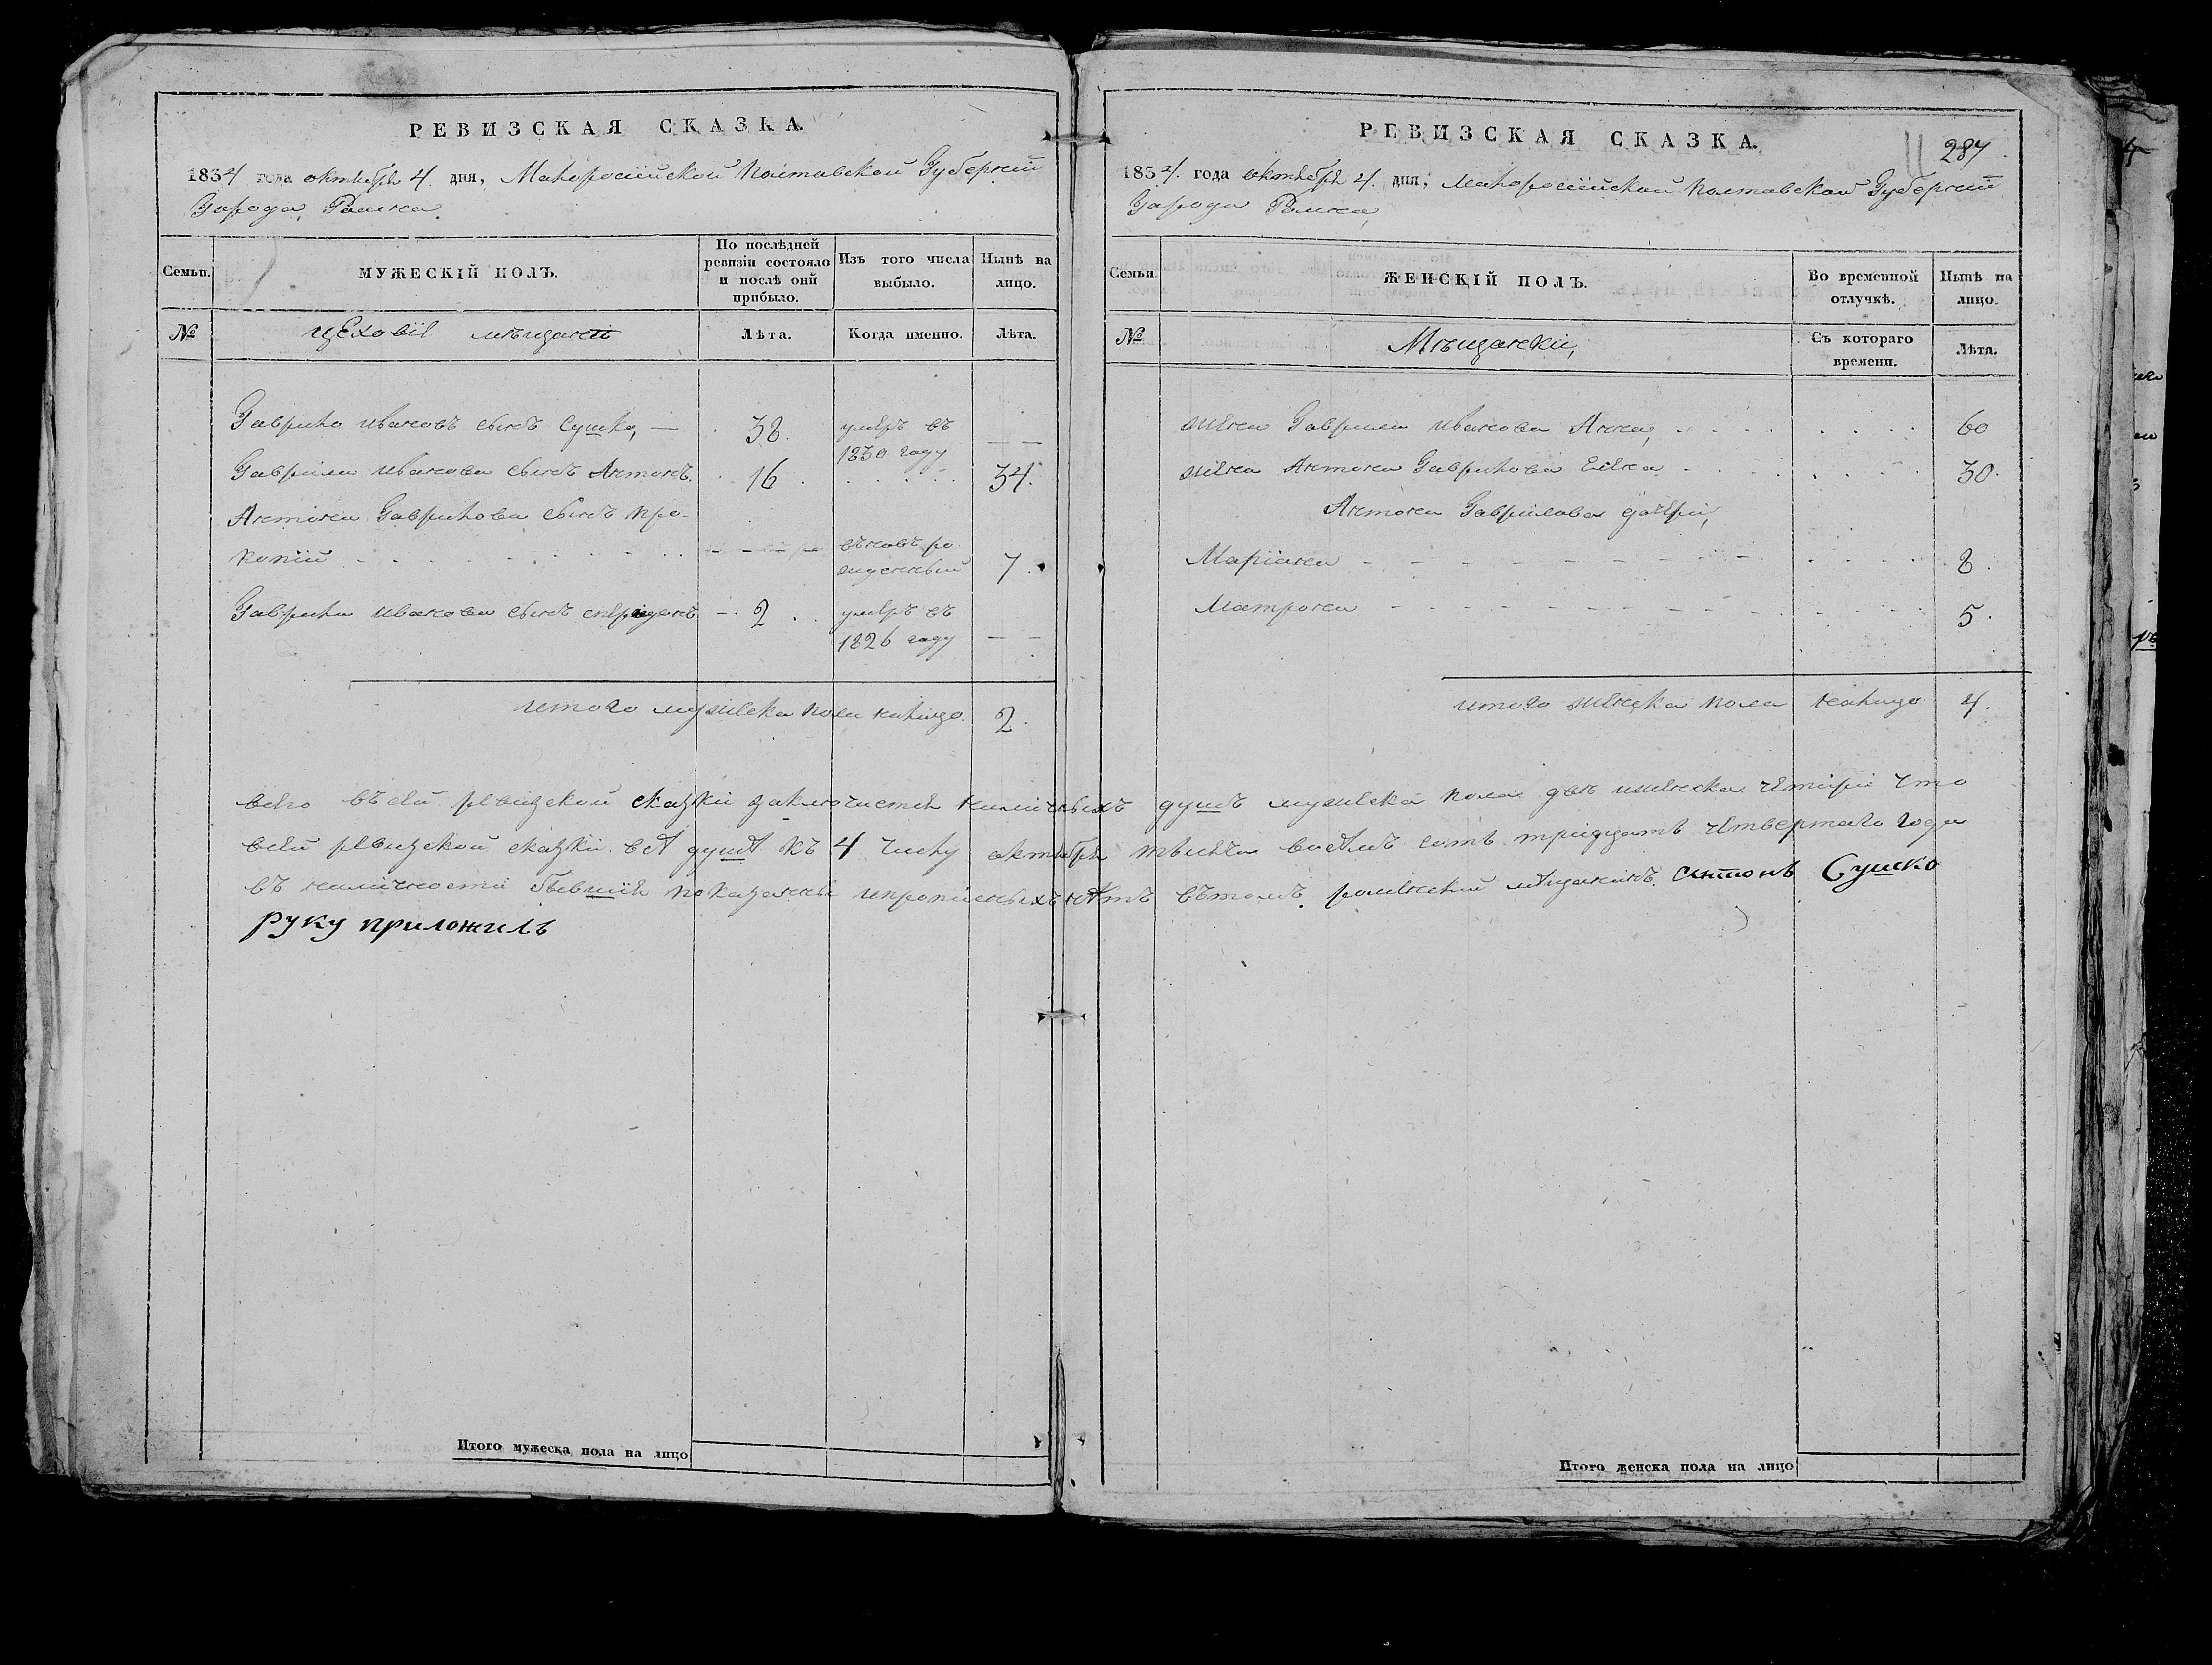 РЕВИЗСКАЯ СКАЗКА.
1834 года октября 4. дня, Малороссійской Полтавской Губерніи
Города Ромна.
Семьи.
МУЖЕСКІЙ ПОЛЪ.
По послѣдней
ревизіи состояло
и послѣ оной
прибыло.
Изъ того числа
выбыло.
Нынѣ на
лицо.
№
цеховіе мѣщане
Лѣта.
Когда именно.
Лѣта.
Гаврило Ивановъ сынъ Сушко, — 58. умеръ въ — —
1830 году
Гаврили Иванова сынъ Антонъ. 16. 34.
Антона Гаврилова сынъ Про-
копій въновь ро
жденный 7.
Гаврили Иванова сынъ Спиридонъ — 2 умеръ въ
1826 году — —
итого мужеска пола налицо. 2.
РЕВИЗСКАЯ СКАЗКА.
287.
1834. года октября 4. дня, Малороссійской Полтавской Губерніи
Города Ромна,
Семьи.
ЖЕНСКІЙ ПОЛЪ.
Во временной
отлучкѣ.
Нынѣ на
лицо.
№
Мѣщанскій,
Съ котораго
времени.
Лѣта.
жена Гаврили Иванова Анна, 60
жена Антона Гаврилова Елена 30.
Антона Гаврилова дочери,
Маріяна 8.
Матрона 5.
итого женска пола налицо 4.
всего въ сей ревизской сказки заключается наличныхъ душъ мужеска пола двѣ и женска четири что
в сей ревизской сказки всѣ душѣ къ 4 числу октября тысяча восѣмъ сотъ тридцатъ четвертаго года
въ наличности бывшія показанны и прописныхъ нѣтъ въ томъ. роменскій мѣщанинъ. Антонъ Сушко
руку приложилъ
Итого мужеска пола на лицо
Итого женска пола на лицо